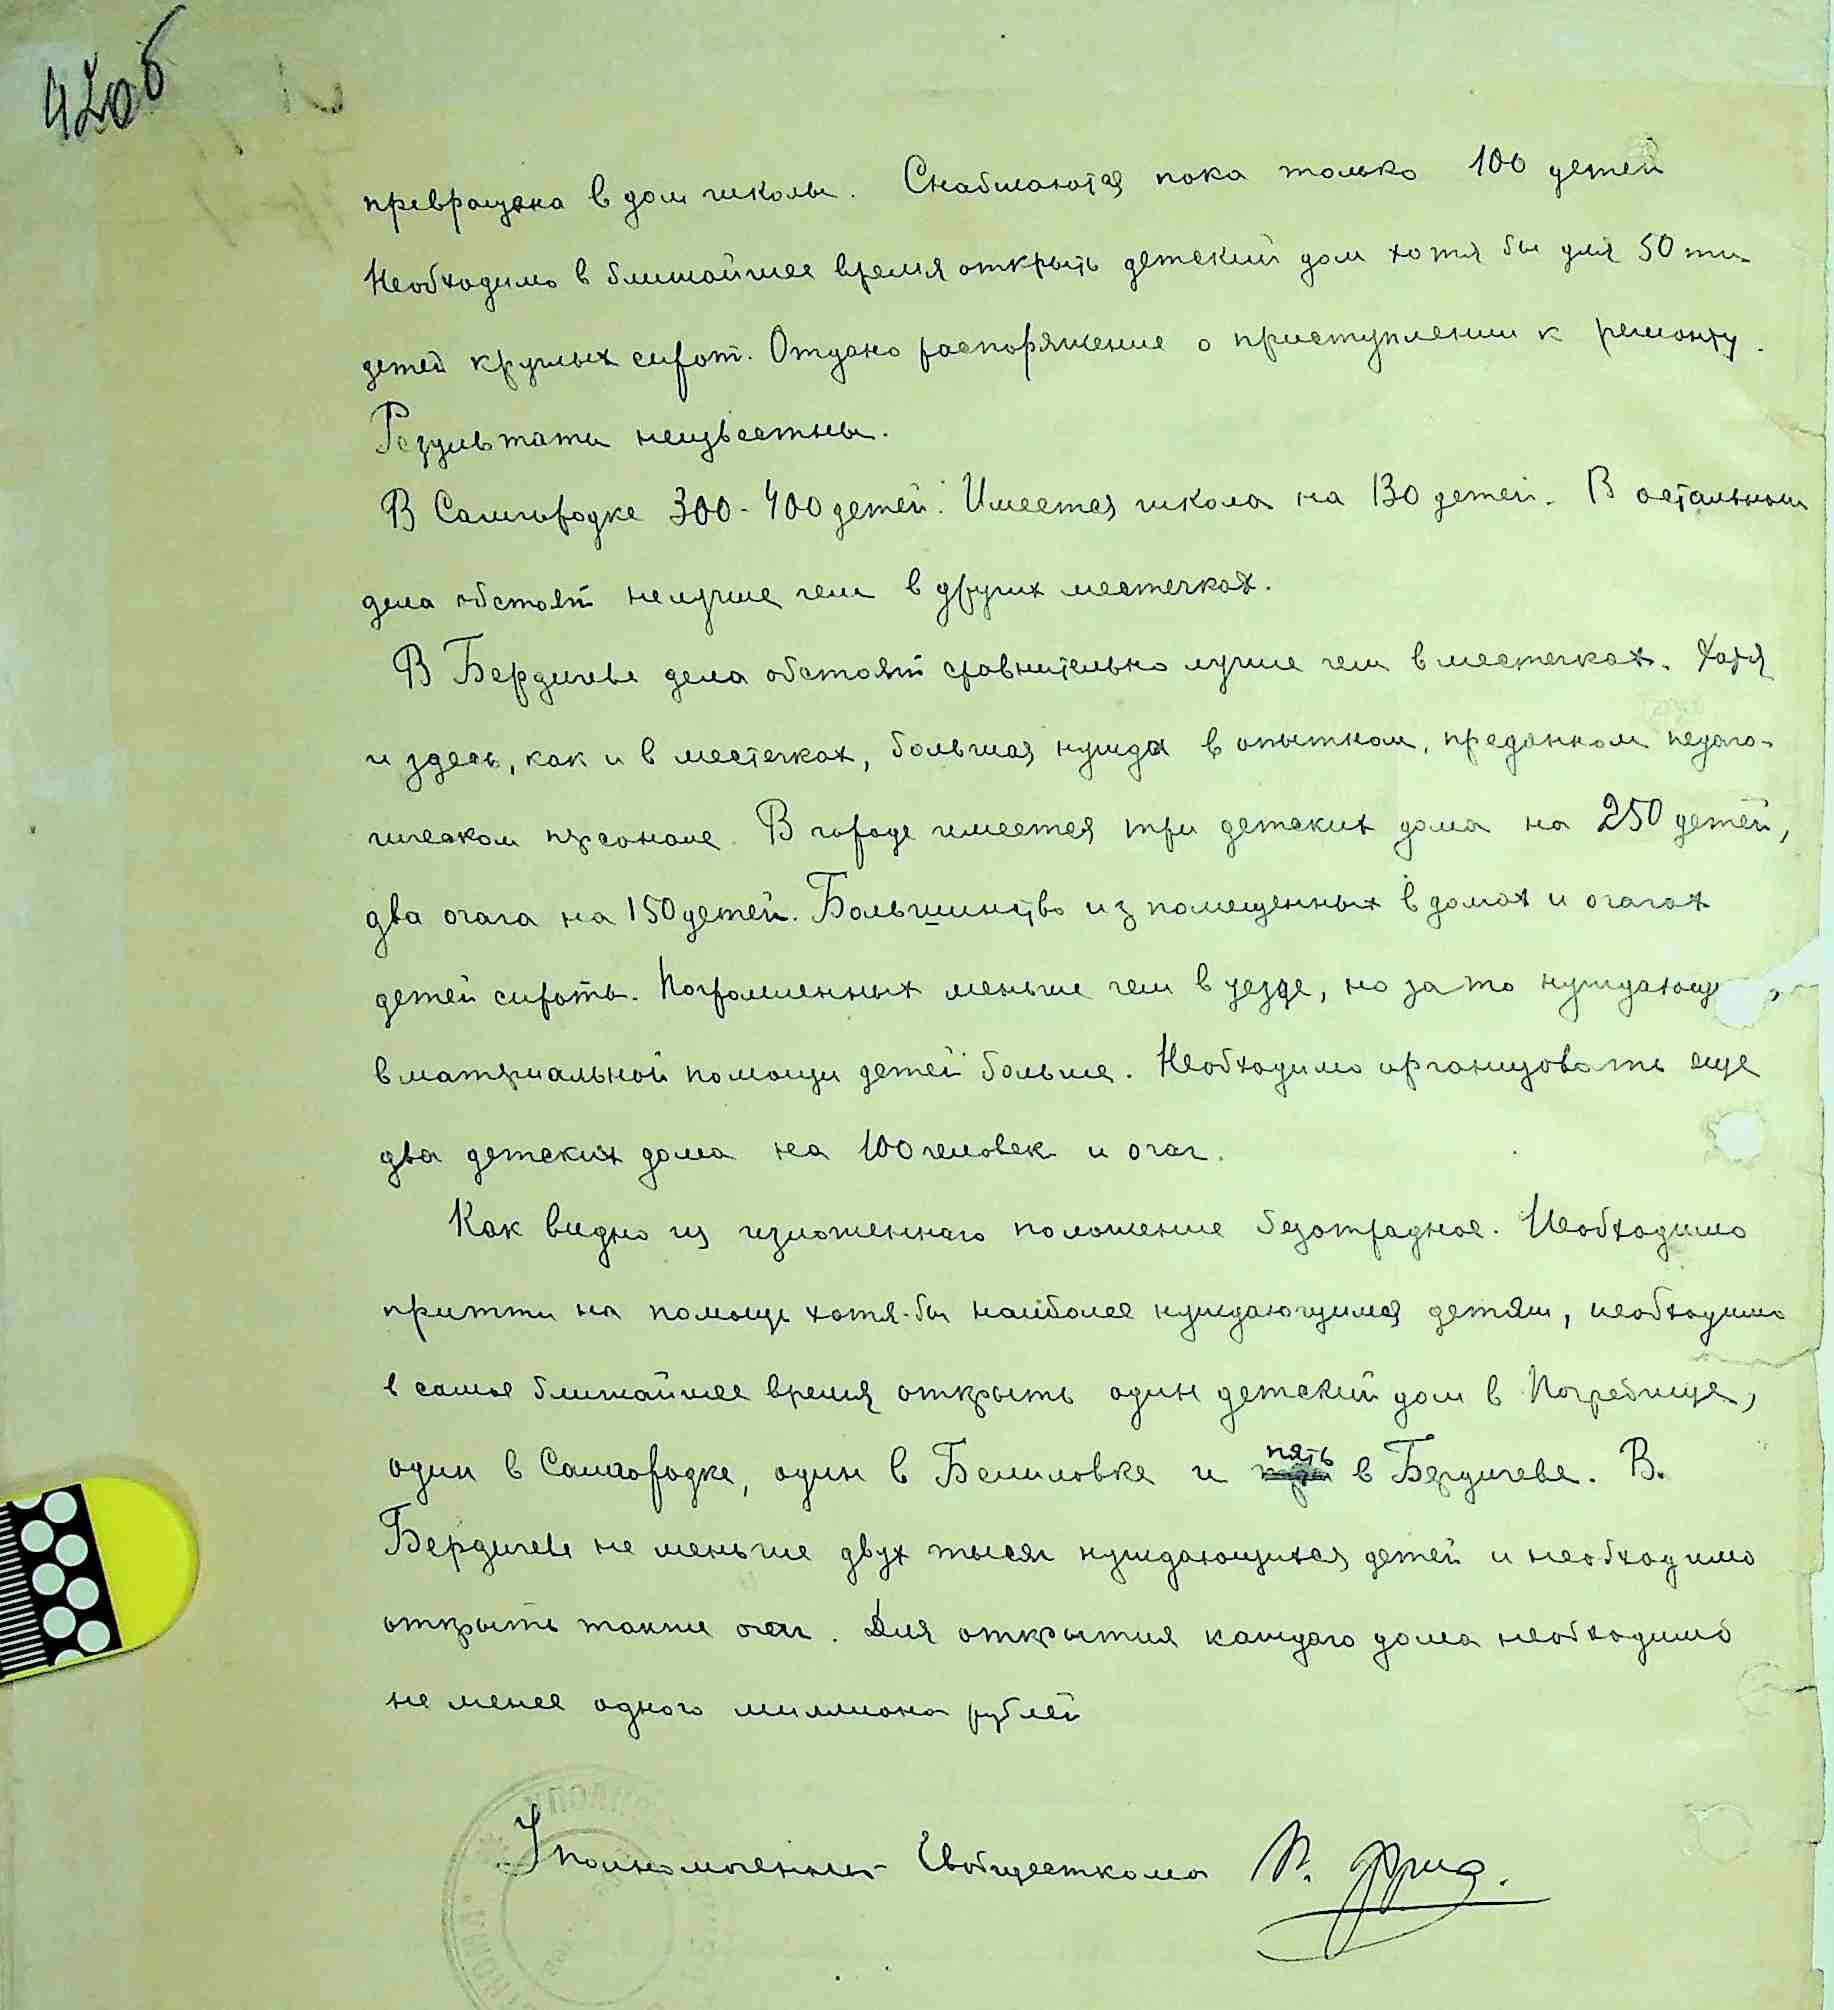 42об
превращена в дом школы. Снабжаются пока только 100 детей
Необходимо в ближайшее время открыть детский дом хотя бы для 50 ти
детей круглых сирот. Отдано распоряжение о приступлении к ремонту.
Результаты неизвестны.
В Самгородке 300-400 детей. Имеется школа на 130 детей. В остальном
дела обстоят не лучше чем в других местечках.
В Бердичеве дела обстоят сравнительно лучше чем в местечках. Хотя
и здесь, как и в местечках, большая нужда в опытном, преданном педаго-
гическом персонале. В городе имеется три детских дома на 250 детей,
два очага на 150 детей. Большинство из помещенных в домах и очагах
детей сироты. Погромленных меньше чем в уезде, но за то нуждающи
в материальной помощи детей больше. Необходимо организовать еще
два детских дома на 100 человек и очаг.
Как видно из изложеннаго положение безотрадное. Необходимо
притти на помощь хотя-бы наиболее нуждающимся детям, необходимо
в самое ближайшее время открыть один детский дом в Погребище,
один в Самгородке, один в Белиловке и пять в Бердичеве. В.
Бердичеве не меньше двух тысяч нуждающихся детей и необходимо
открыть также очаг. Для открытия каждаго дома необходимо
не менее одного миллиона рублей
Уполномоченный Евобщесткома И. Фрид.